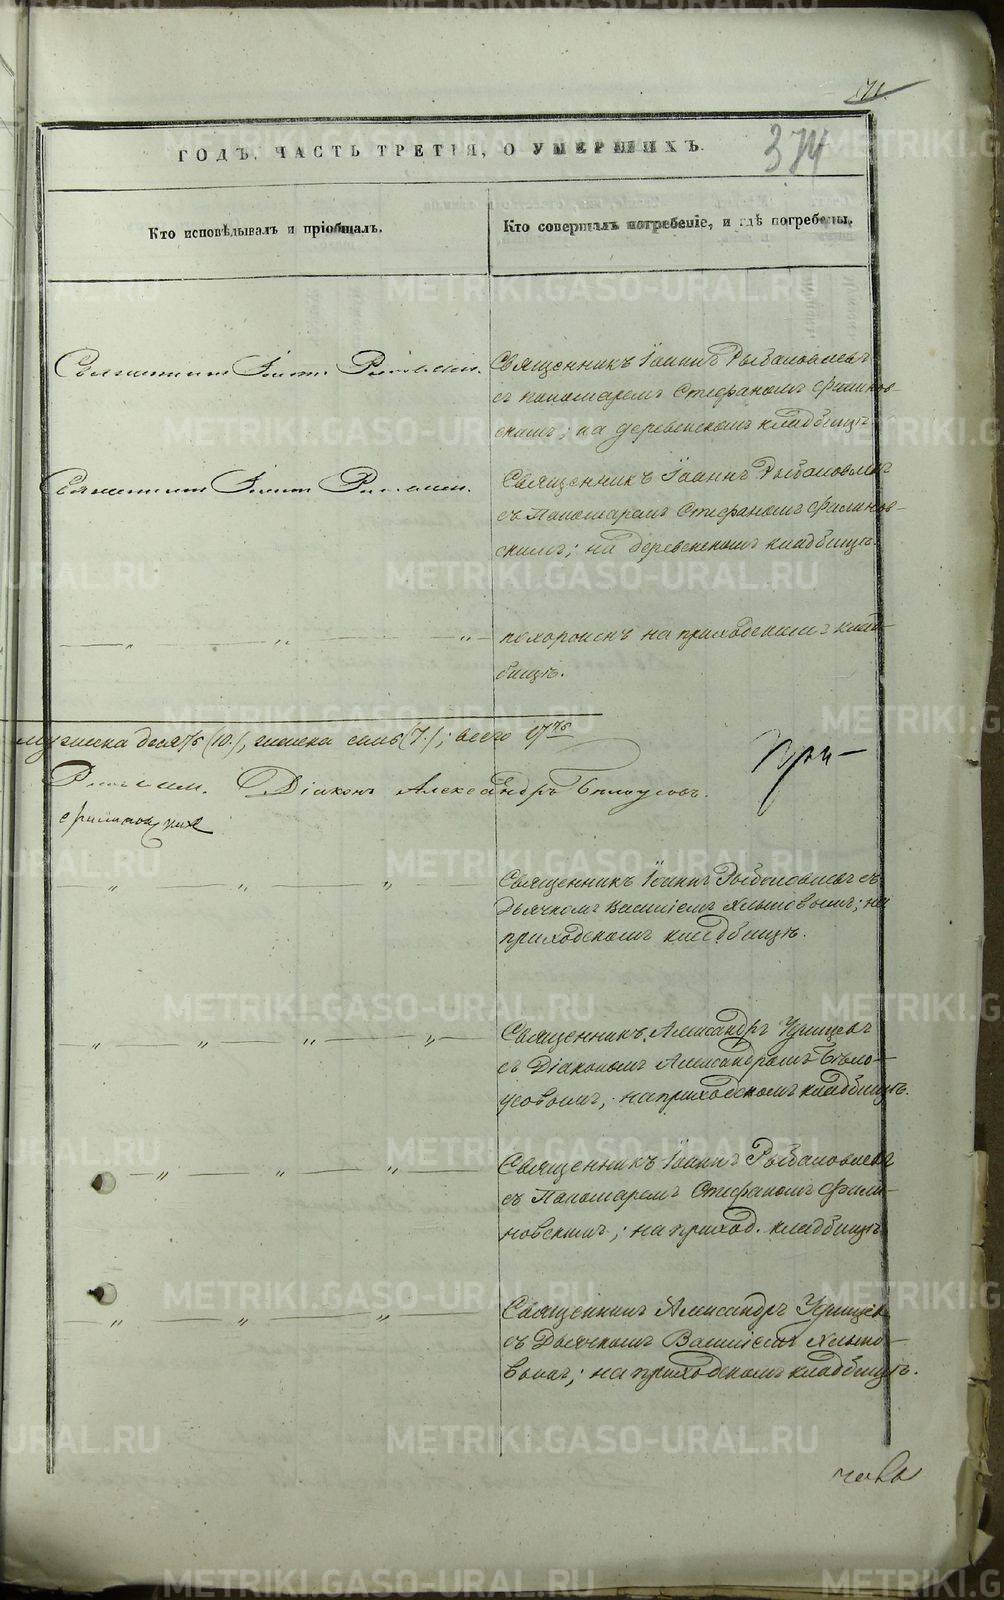 71.
374
ГОДЪ, ЧАСТЬ ТРЕТІЯ, О УМЕРШИХЪ.
Кто исповѣдывалъ и пріобщалъ.
Кто совершалъ погребеніе, и гдѣ погребены.
Священникъ Іоаннъ
Священникъ Іоаннъ Рыболовлевъ
съ пономаремъ Стефаномъ Филинов-
скимъ; на деревенскомъ кладбищѣ
Священникъ Іоаннъ
Священникъ Іоаннъ Рыболовлевъ
съ Пономаремъ Стефаномъ Филинов-
скимъ; на деревенскомъ кладбищѣ.
похороненъ на приходскомъ клад-
бищѣ.
мужеска десять (10.), женска семь (7.); всего 17
Діаконъ Александръ Бѣлоусовъ.
При-
Священникъ Іоаннъ Рыболовлевъ съ
Дьячкомъ Василіемъ; на
приходскомъ кладбищѣ.
Священникъ Александръ
съ Діакономъ Александромъ Бѣло-
усовымъ; на приходскомъ кладбищѣ.
Священникъ Іоаннъ Рыболовлевъ
съ Пономаремъ Стефаномъ Фили-
новскимъ; на приход. кладбищѣ
Священникъ Александръ
съ Дьячкомъ Василіемъ
вымъ; на приходскомъ кладбищѣ.
METRIKI.GASO-URAL.RU